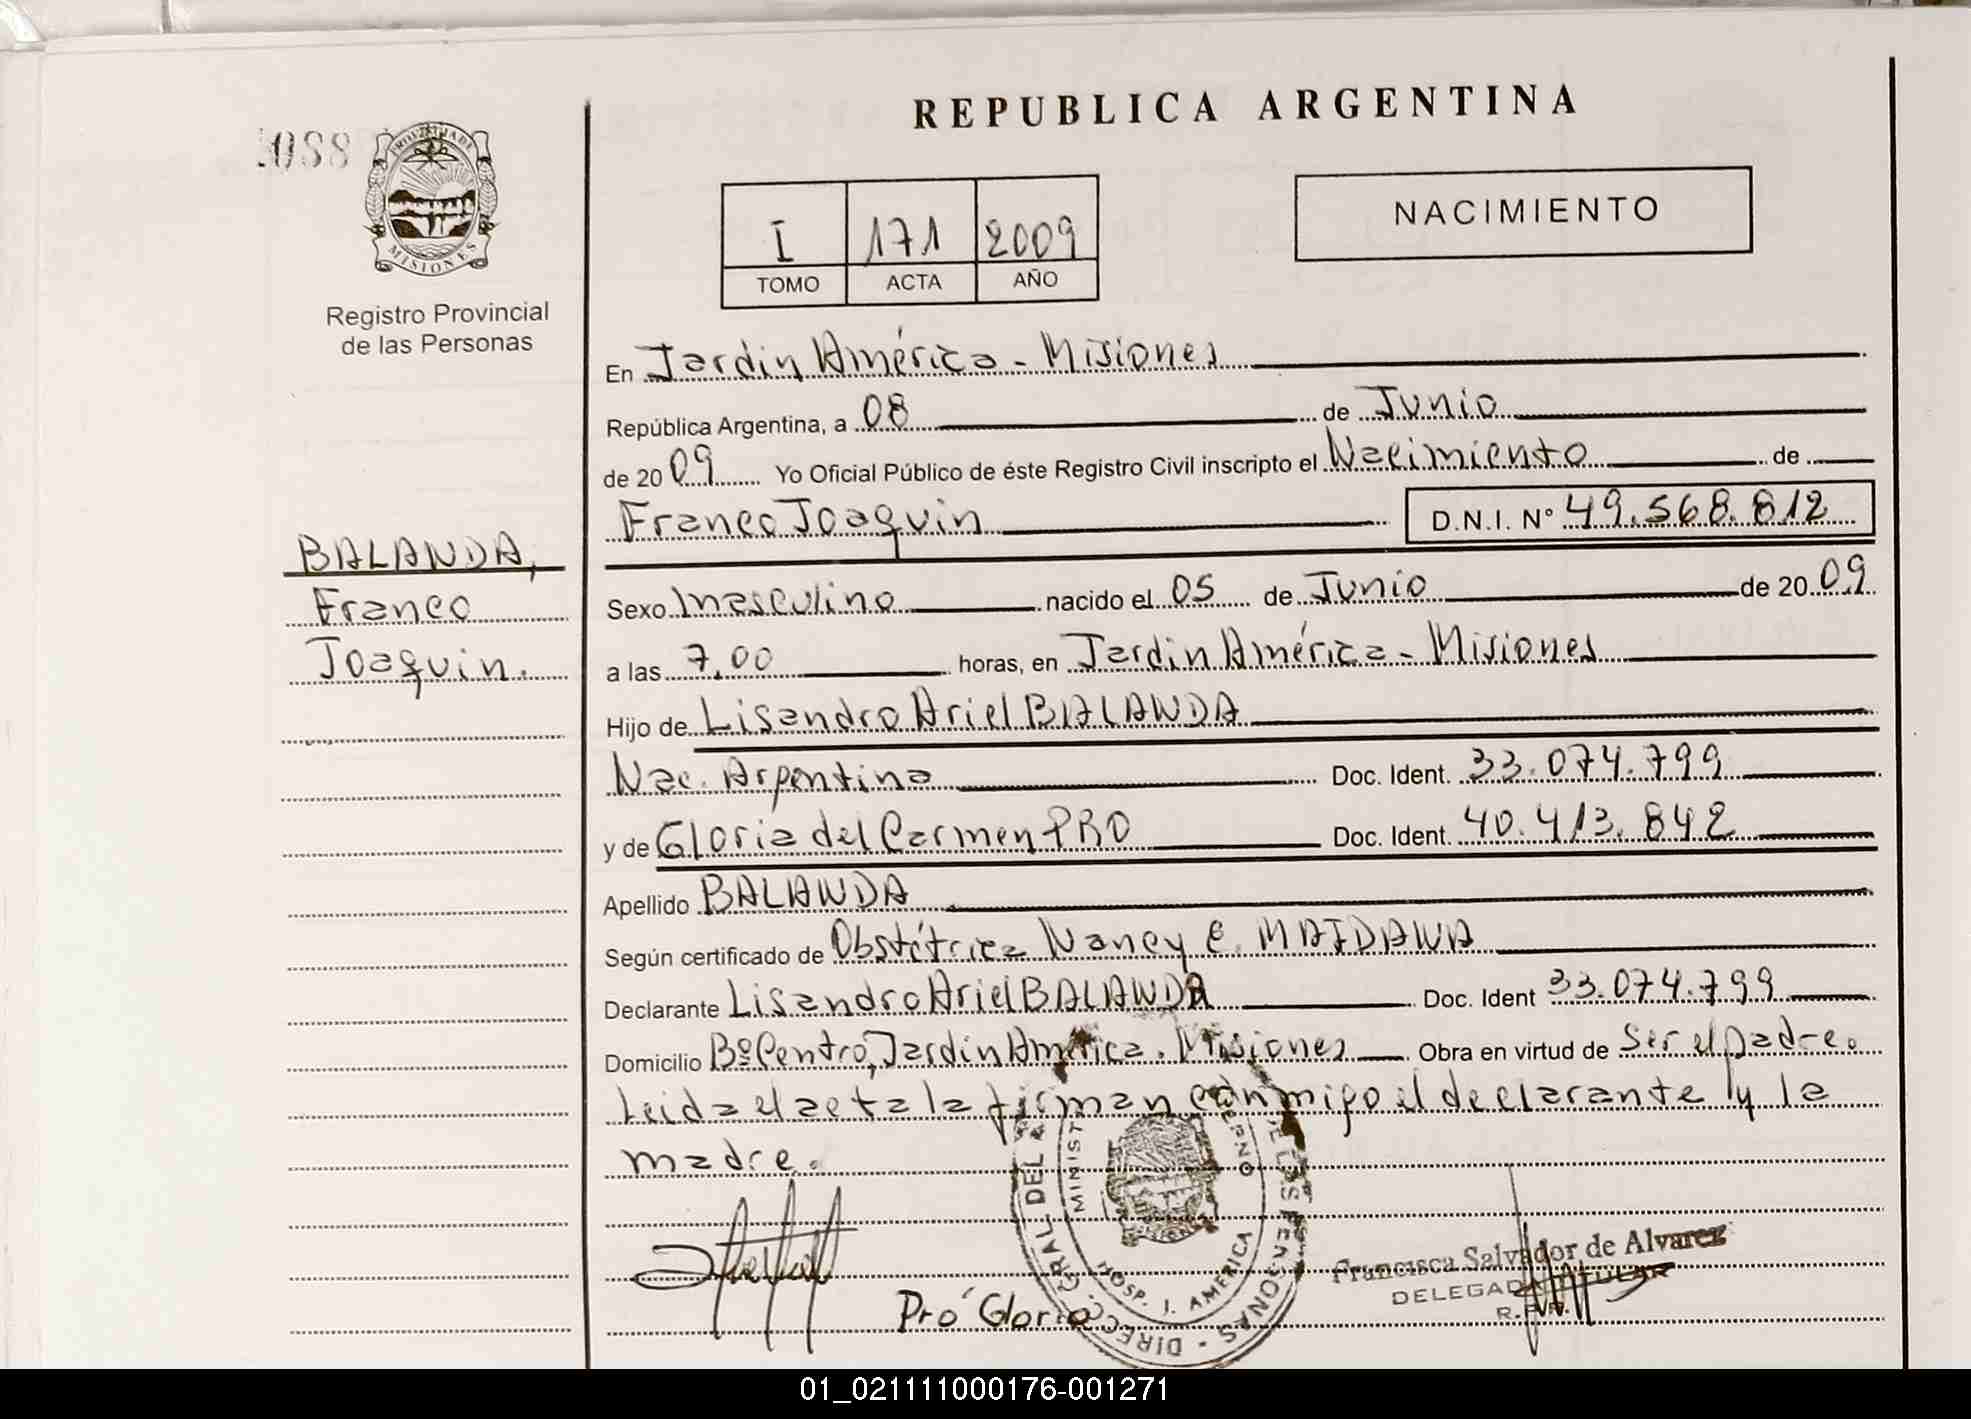 REPUBLICA ARGENTINA
088
PROVINCIA DE
MISIONES
Registro Provincial
de las Personas
I 171 2009
TOMO ACTA AÑO
NACIMIENTO
En Jardín América - Misiones
República Argentina, a 08 de Junio
de 2009 Yo Oficial Público de éste Registro Civil inscripto el Nacimiento de
Franco Joaquin D.N.I. Nº 49.568.812
BALANDA,
Franco
Joaquin.
Sexo masculino nacido el 05 de Junio de 2009
a las 7,00 horas, en Jardín América - Misiones
Hijo de Lisandro Ariel BALANDA
Nac. Argentina Doc. Ident. 33.074.799
y de Gloria del Carmen PRO Doc. Ident. 40.413.842
Apellido BALANDA
Según certificado de Obstétrica Nancy E. MAIDANA
Declarante Lisandro Ariel BALANDA Doc. Ident 33.074.799
Domicilio Bº Centro, Jardín América. Misiones Obra en virtud de Ser el padre.
Leida el acta la firman conmigo el declarante y la
madre.
Pro Gloria
HOSP. J. AMERICA
Francisca Salvador de Alvarez
DELEGADA TITULAR
01_021111000176-001271